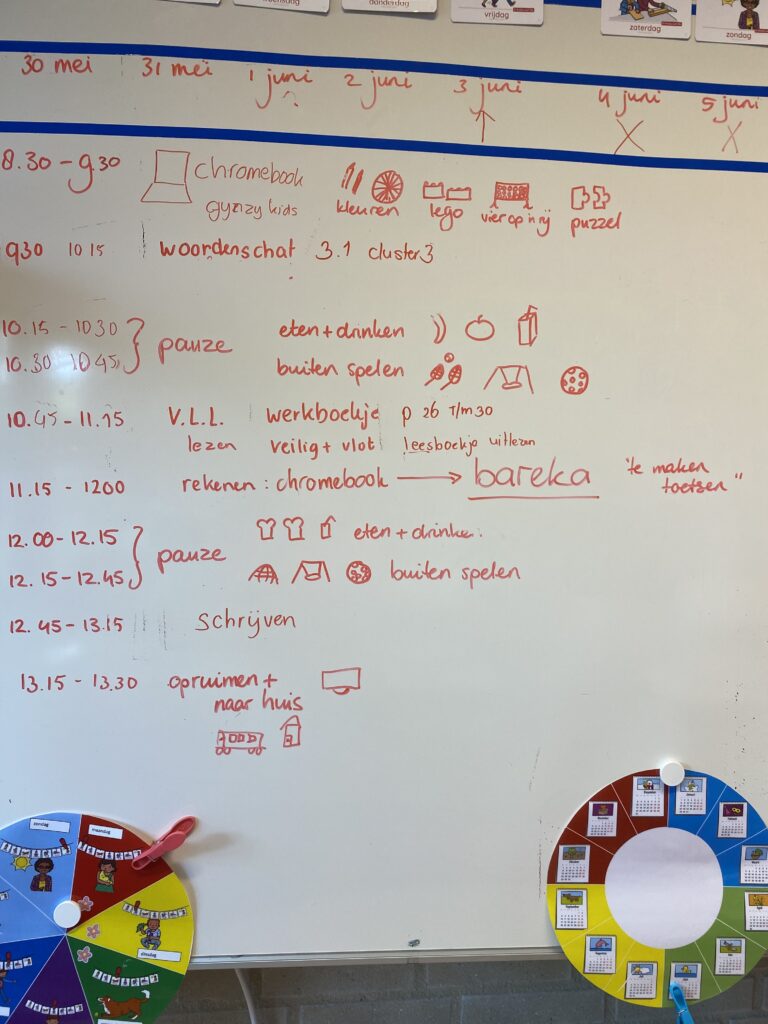 donderdag
vrijdag
zaterdag
zondag
30 mei 31 mei 1 juni 2 juni 3 juni 4 juni 5 juni
8.30 - 9 30 chromebook
gynzy kids kleuren lego vier op in rij puzzel
930 10 15 woordenschat 3.1 cluster 3
10.15 - 1030 } pauze eten + drinken
10.30 1045 buiten spelen
10.45 - 11.15 V.L.L. werkboekje p 26 T/m 30
lezen veilig + vlot leesboekje uitlezen
11.15 - 1200 rekenen : chromebook → bareka "te maken
toetsen"
12.00 - 12.15 } pauze eten + drinken.
12.15 - 12.45 buiten spelen
12.45 - 13.15 schrijven
13.15 - 13.30 opruimen +
naar huis
zondag
maandag
dinsdag